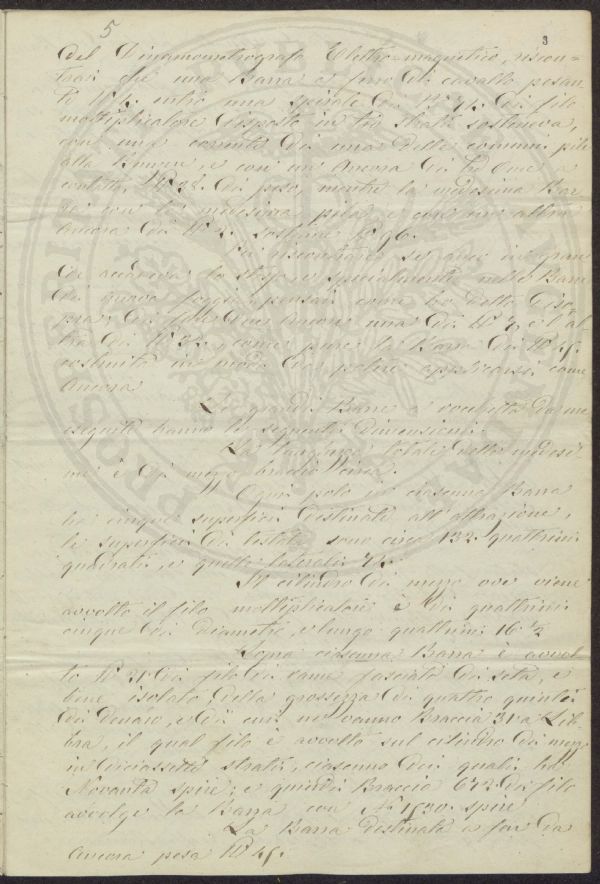 5 3
del Dinamometrografo Elettro-magnetico, riscon=
trai che una Barra a ferro di cavallo pesan
te entro una spirale di di filo
moltiplicatore disposto in tre strati sosteneva,
con una corrente di una delle comuni pile
alla Bunsen, e con un'Ancora di
contatti, di peso, mentre la medesima Bar
ra con la medesima pila, e con un'altra
Ancora di sostiene 96.
riscontrare se anco in gran
de accadeva lo stesso e specialmente nelle Barre
di nuova foggia, pensai come ho detto di so
pra, di fare due Ancore una di e l'al
tra di come pure la Barra di 45.
costruita in modo da potere come
Ancora
Le grandi Barre a rocchetto da me
eseguite hanno le seguenti dimensioni.
La lunghezza totale delle medesi
me è di mezzo braccio circa.
Ogni polo in ciascuna Barra
ha cinque superfici destinate all'attrazione,
le superfici di testata sono circa 132. quattrini
quadrati, e quelle laterali
Il cilindro di mezzo ove viene
avvolto il filo moltiplicatore è di quattrini
cinque di diametro, e lungo quattrini 16 ½
Sopra ciascuna Barra è avvol
to di filo di rame fasciato di seta, e
bene isolato della grossezza di quattro quinti
di Denaro, e di cui ne vanno Braccia 31 a Lib
bra, il qual filo è avvolto sul cilindro di mezzo
in diciassette strati, ciascuno dei quali ha
Novanta spire; e quindi Braccia di filo
avvolge la Barra con N. 1530. spire
La Barra destinata a far da
Ancora pesa 45.